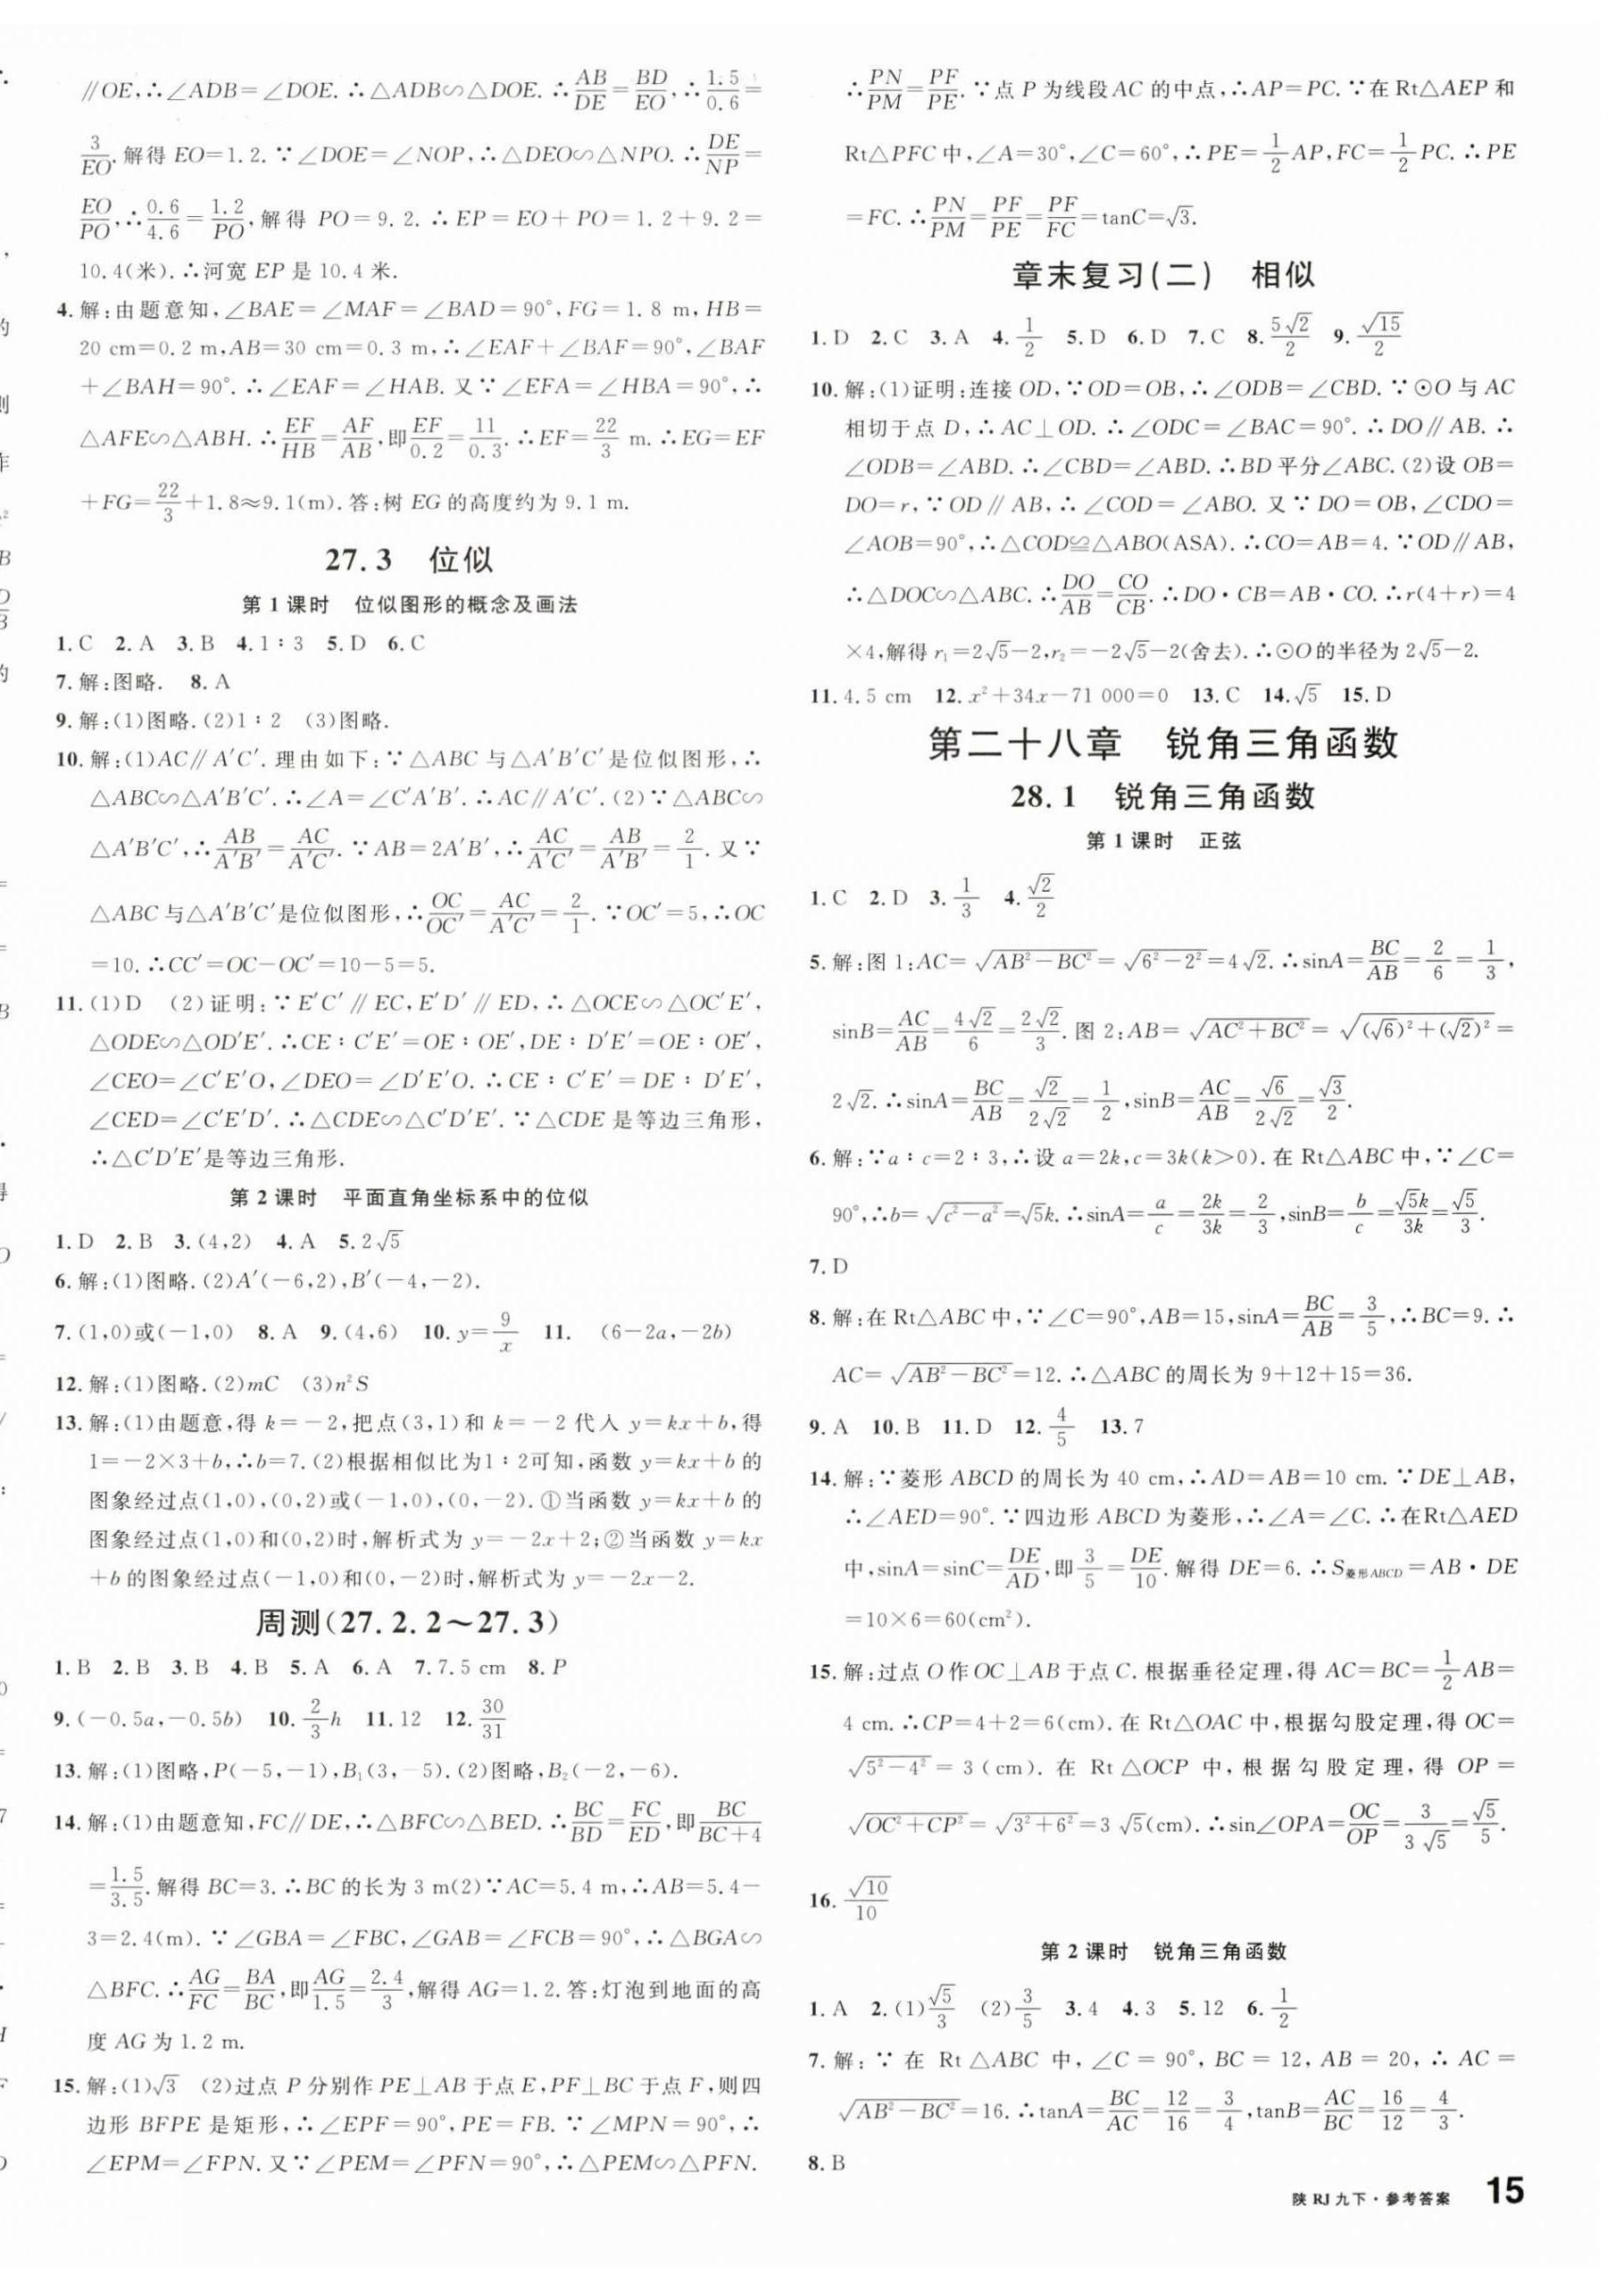 ∥OE,∴∠ADB=∠DOE.∴△ADB∽△DOE.∴AB/DE=BD/EO,∴1.5/0.6=
3/EO.解得 EO=1.2.∵∠DOE=∠NOP,∴△DEO∽△NPO.∴DE/NP=
EO/PO,∴0.6/4.6=1.2/PO,解得 PO=9.2.∴EP=EO+PO=1.2+9.2=
10.4(米).∴河宽 EP 是 10.4 米.
4.解:由题意知,∠BAE=∠MAF=∠BAD=90°,FG=1.8 m,HB=
20 cm=0.2 m,AB=30 cm=0.3 m,∴∠EAF+∠BAF=90°,∠BAF
+∠BAH=90°.∴∠EAF=∠HAB.又∵∠EFA=∠HBA=90°,∴
△AFE∽△ABH.∴EF/HB=AF/AB,即EF/0.2=11/0.3.∴EF=22/3 m.∴EG=EF
+FG=22/3+1.8≈9.1(m).答:树 EG 的高度约为 9.1 m.
27.3 位似
第 1 课时 位似图形的概念及画法
1.C 2.A 3.B 4.1∶3 5.D 6.C
7.解:图略. 8.A
9.解:(1)图略.(2)1∶2 (3)图略.
10.解:(1)AC∥A′C′.理由如下:∵△ABC 与△A′B′C′是位似图形,∴
△ABC∽△A′B′C′.∴∠A=∠C′A′B′.∴AC∥A′C′.(2)∵△ABC∽
△A′B′C′,∴AB/A′B′=AC/A′C′.∵AB=2A′B′,∴AC/A′C′=AB/A′B′=2/1.又∵
△ABC 与△A′B′C′是位似图形,∴OC/OC′=AC/A′C′=2/1.∵OC′=5,∴OC
=10.∴CC′=OC−OC′=10−5=5.
11.(1)D (2)证明:∵E′C′∥EC,E′D′∥ED,∴△OCE∽△OC′E′,
△ODE∽△OD′E′.∴CE∶C′E′=OE∶OE′,DE∶D′E′=OE∶OE′,
∠CEO=∠C′E′O,∠DEO=∠D′E′O.∴CE∶C′E′=DE∶D′E′,
∠CED=∠C′E′D′.∴△CDE∽△C′D′E′.∵△CDE 是等边三角形,
∴△C′D′E′是等边三角形.
第 2 课时 平面直角坐标系中的位似
1.D 2.B 3.(4,2) 4.A 5.2√5
6.解:(1)图略.(2)A′(−6,2),B′(−4,−2).
7.(1,0)或(−1,0) 8.A 9.(4,6) 10.y=9/x 11. (6−2a,−2b)
12.解:(1)图略.(2)mC (3)n²S
13.解:(1)由题意,得 k=−2,把点(3,1)和 k=−2 代入 y=kx+b,得
1=−2×3+b,∴b=7.(2)根据相似比为1∶2可知,函数 y=kx+b 的
图象经过点(1,0),(0,2)或(−1,0),(0,−2).①当函数 y=kx+b 的
图象经过点(1,0)和(0,2)时,解析式为 y=−2x+2;②当函数 y=kx
+b 的图象经过点(−1,0)和(0,−2)时,解析式为 y=−2x−2.
周测(27.2.2～27.3)
1.B 2.B 3.B 4.B 5.A 6.A 7.7.5 cm 8.P
9.(−0.5a,−0.5b) 10.2/3h 11.12 12.30/31
13.解:(1)图略,P(−5,−1),B₁(3,−5).(2)图略,B₂(−2,−6).
14.解:(1)由题意知,FC∥DE,∴△BFC∽△BED.∴BC/BD=FC/ED,即BC/(BC+4)
=1.5/3.5.解得 BC=3.∴BC 的长为 3 m(2)∵AC=5.4 m,∴AB=5.4−
3=2.4(m).∵∠GBA=∠FBC,∠GAB=∠FCB=90°,∴△BGA∽
△BFC.∴AG/FC=BA/BC,即AG/1.5=2.4/3,解得 AG=1.2.答:灯泡到地面的高
度 AG 为 1.2 m.
15.解:(1)√3 (2)过点 P 分别作 PE⊥AB 于点 E,PF⊥BC 于点 F,则四
边形 BFPE 是矩形,∴∠EPF=90°,PE=FB.∵∠MPN=90°,∴
∠EPM=∠FPN.又∵∠PEM=∠PFN=90°,∴△PEM∽△PFN.
∴PN/PM=PF/PE.∵点 P 为线段 AC 的中点,∴AP=PC.∵在 Rt△AEP 和
Rt△PFC 中,∠A=30°,∠C=60°,∴PE=1/2AP,FC=1/2PC.∴PE
=FC.∴PN/PM=PF/PE=PF/FC=tanC=√3.
章末复习(二) 相似
1.D 2.C 3.A 4.1/2 5.D 6.D 7.C 8.5√2/2 9.√15/2
10.解:(1)证明:连接 OD,∵OD=OB,∴∠ODB=∠CBD.∵⊙O 与 AC
相切于点 D,∴AC⊥OD.∴∠ODC=∠BAC=90°.∴DO∥AB.∴
∠ODB=∠ABD.∴∠CBD=∠ABD.∴BD 平分∠ABC.(2)设 OB=
DO=r,∵OD∥AB,∴∠COD=∠ABO.又∵DO=OB,∠CDO=
∠AOB=90°,∴△COD≌△ABO(ASA).∴CO=AB=4.∵OD∥AB,
∴△DOC∽△ABC.∴DO/AB=CO/CB.∴DO·CB=AB·CO.∴r(4+r)=4
×4,解得 r₁=2√5−2,r₂=−2√5−2(舍去).∴⊙O 的半径为 2√5−2.
11.4.5 cm 12.x²+34x−71 000=0 13.C 14.√5 15.D
第二十八章 锐角三角函数
28.1 锐角三角函数
第 1 课时 正弦
1.C 2.D 3.1/3 4.√2/2
5.解:图 1:AC=√(AB²−BC²)=√(6²−2²)=4√2.∴sinA=BC/AB=2/6=1/3,
sinB=AC/AB=4√2/6=2√2/3.图 2:AB=√(AC²+BC²)=√((√6)²+(√2)²)=
2√2.∴sinA=BC/AB=√2/2√2=1/2,sinB=AC/AB=√6/2√2=√3/2.
6.解:∵a∶c=2∶3,∴设 a=2k,c=3k(k>0).在 Rt△ABC 中,∵∠C=
90°,∴b=√(c²−a²)=√5k.∴sinA=a/c=2k/3k=2/3,sinB=b/c=√5k/3k=√5/3.
7.D
8.解:在 Rt△ABC 中,∵∠C=90°,AB=15,sinA=BC/AB=3/5,∴BC=9.∴
AC=√(AB²−BC²)=12.∴△ABC 的周长为 9+12+15=36.
9.A 10.B 11.D 12.4/5 13.7
14.解:∵菱形 ABCD 的周长为 40 cm,∴AD=AB=10 cm.∵DE⊥AB,
∴∠AED=90°.∵四边形 ABCD 为菱形,∴∠A=∠C.∴在Rt△AED
中,sinA=sinC=DE/AD,即3/5=DE/10.解得 DE=6.∴S菱形ABCD=AB·DE
=10×6=60(cm²).
15.解:过点 O 作 OC⊥AB 于点 C.根据垂径定理,得 AC=BC=1/2AB=
4 cm.∴CP=4+2=6(cm).在 Rt△OAC 中,根据勾股定理,得 OC=
√(5²−4²)=3(cm).在 Rt△OCP 中,根据勾股定理,得 OP=
√(OC²+CP²)=√(3²+6²)=3√5(cm).∴sin∠OPA=OC/OP=3/3√5=√5/5.
16.√10/10
第 2 课时 锐角三角函数
1.A 2.(1)√5/3 (2)3/5 3.4 4.3 5.12 6.1/2
7.解:∵在 Rt△ABC 中,∠C=90°,BC=12,AB=20,∴AC=
√(AB²−BC²)=16.∴tanA=BC/AC=12/16=3/4,tanB=AC/BC=16/12=4/3.
8.B
陕 RJ 九下·参考答案 15